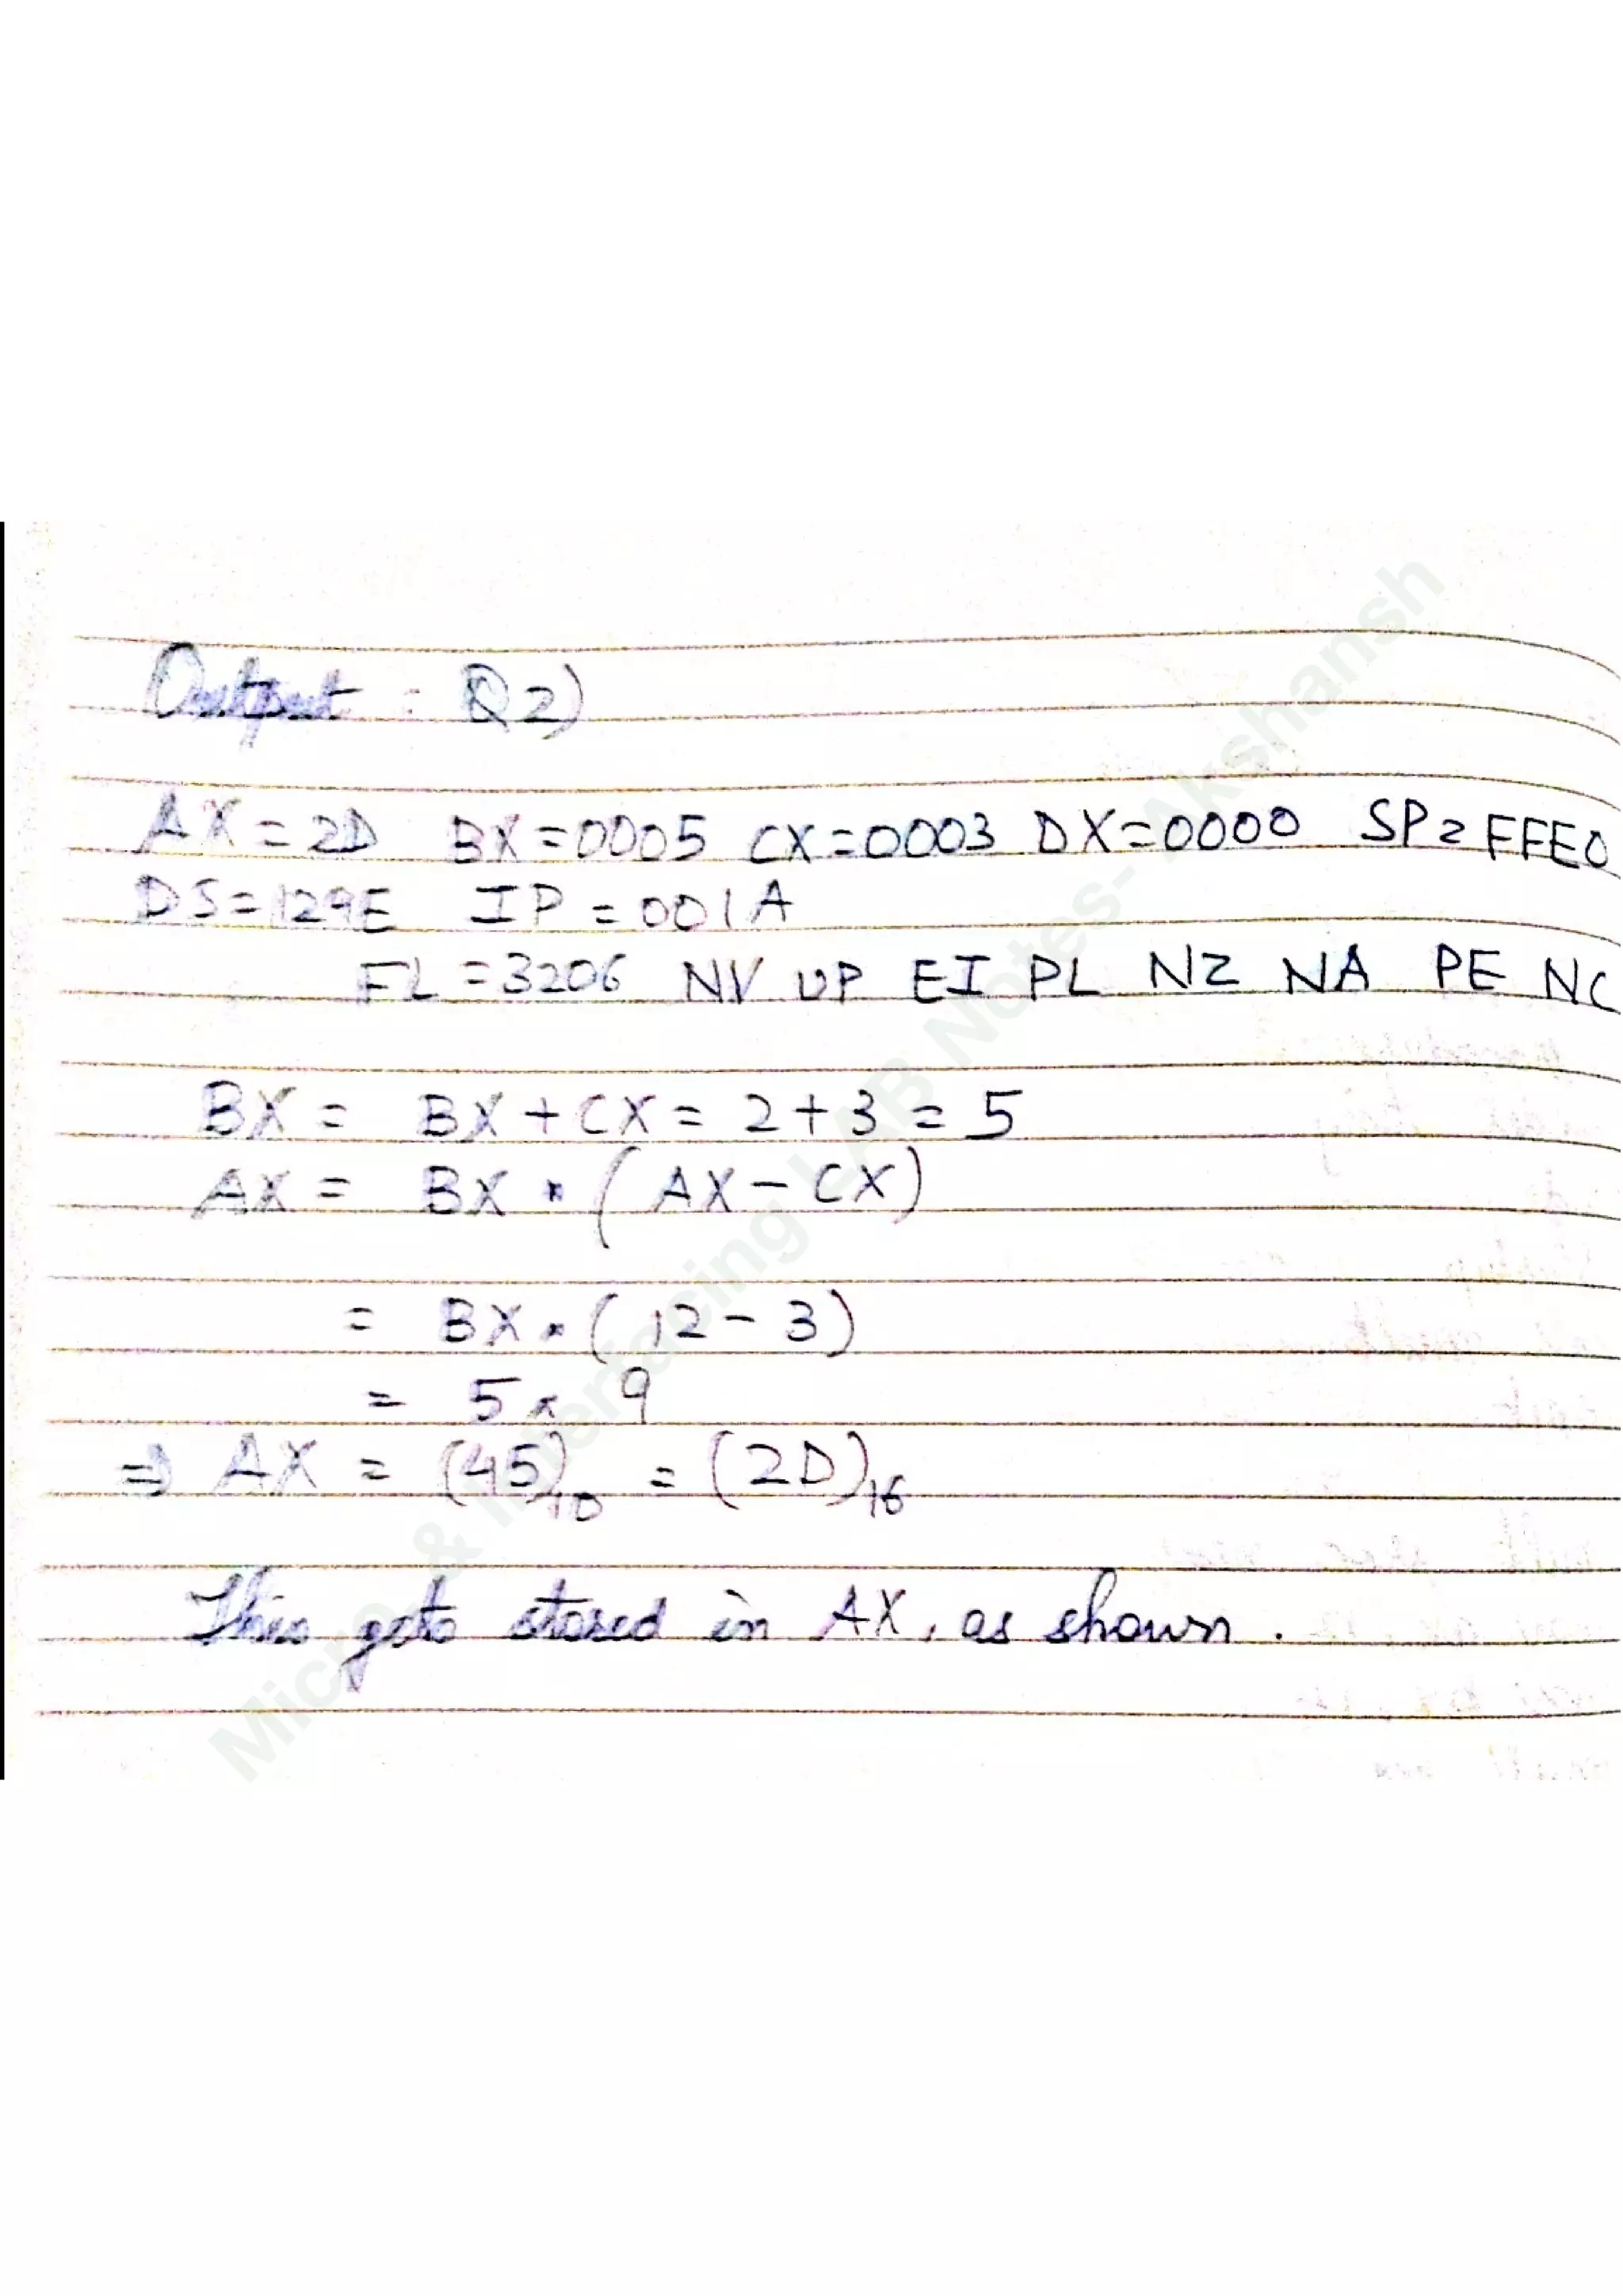 Output : Q2)
AX = 2D BX = 0005 CX = 0003 DX = 0000 SP = FFE0
DS = 129E IP = 001A
FL = 3206 NV UP EI PL NZ NA PE NC
BX = BX + CX = 2 + 3 = 5
AX = BX * (AX - CX)
= BX * (12 - 3)
= 5 * 9
⇒ AX = (45)10 = (2D)16
This gets stored in AX, as shown.
Micro & Interfacing LAB Notes- Akshansh